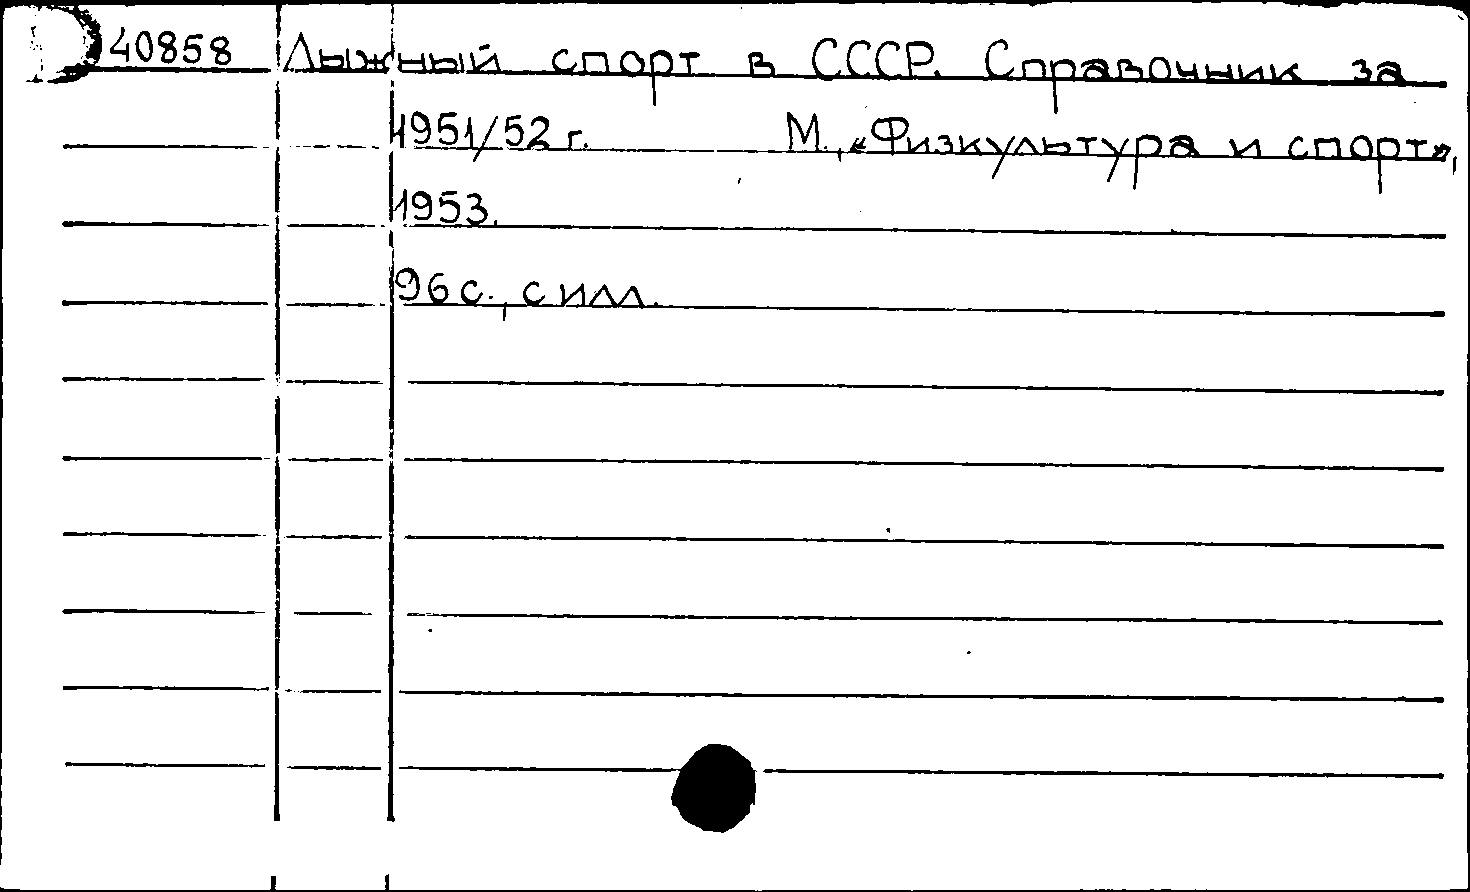 40858 Лыжный спорт в СССР. Справочник за
1951/52 г. М., «Физкультура и спорт»,
1953.
96 с., с илл.